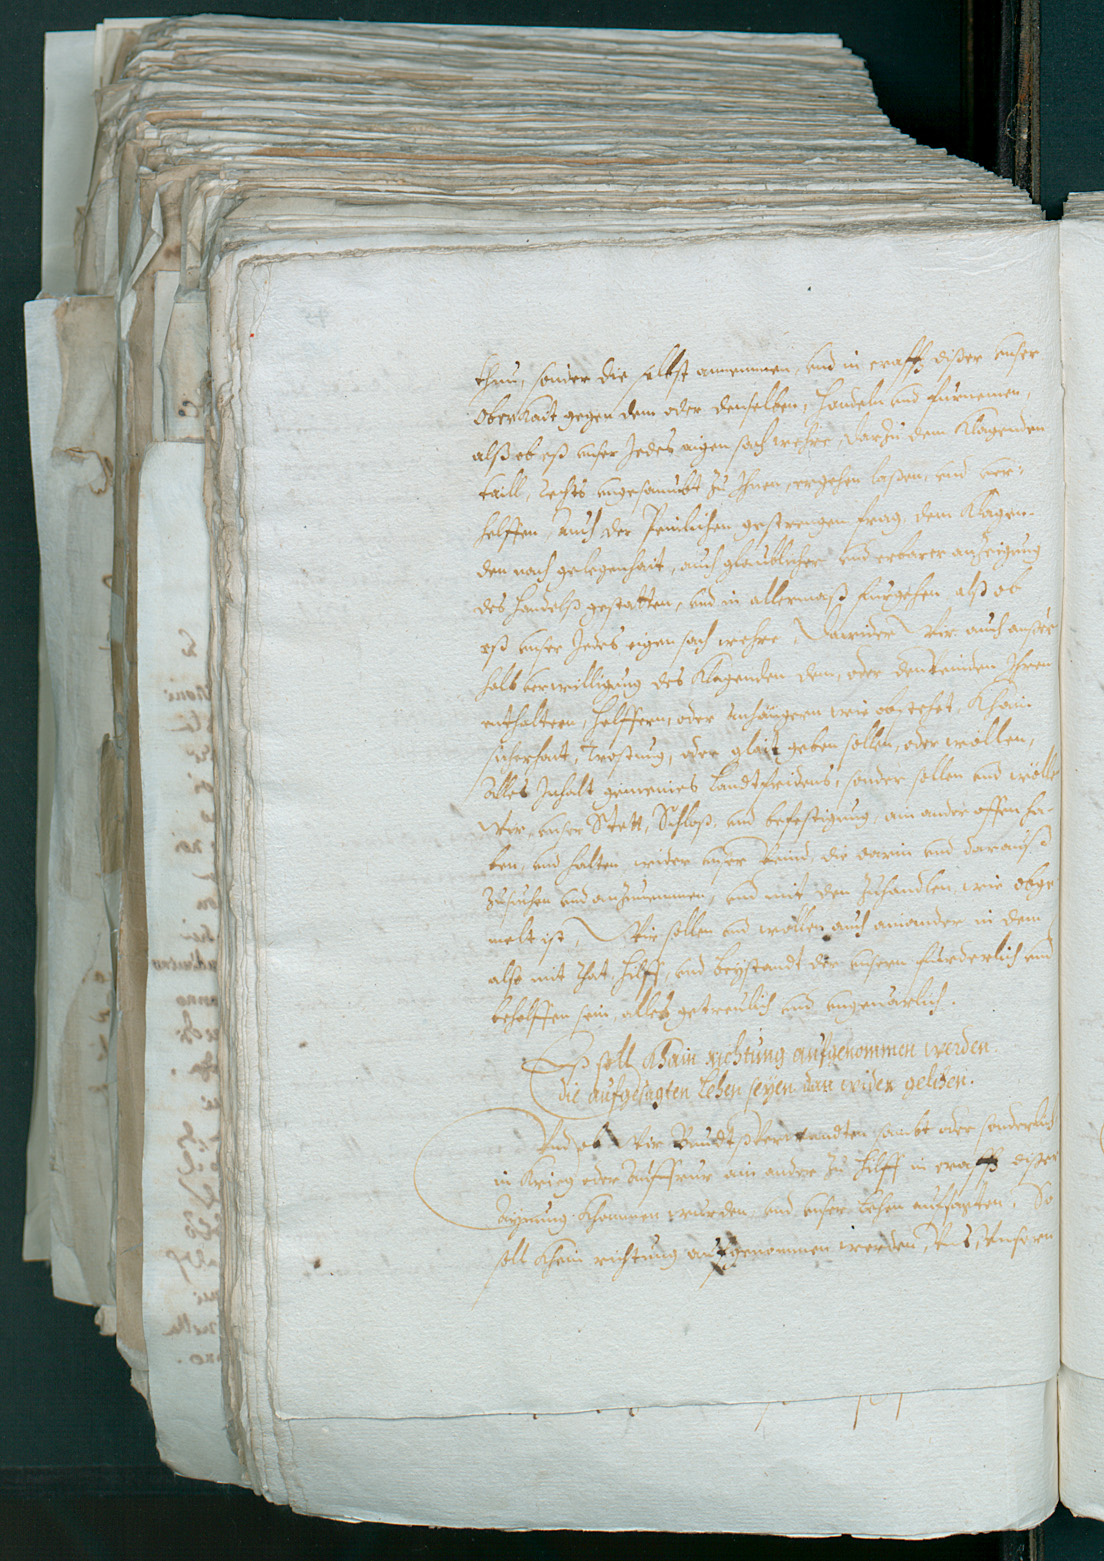 thun, sonder die selbst annemmen, und in crafft dißer unser
Oberkait gegen dem oder denselben, handeln und furnemen,
alß ob eß unser Jedes aigen sach wehre, darzu dem Klagenden
taill, Rechts ungesaumbt zu Ihnen, ergehen laßen, und ver-
helffen, Auch der Peinlichen gestrengen frag, dem Klagen-
den nach gelegenhait, auch glaublicher und erbarer anzeigung
des handelß gestatten, und in allermaß furgehen, alß ob
eß unser Jedes eigen sach wehre, Wir auch ausser
halb bewilligung des Klagenden dem, oder den Feinden Ihren
enthaltern, helffern, oder anhängern wie obstehet, Khain
sicherhait, Trostung, oder glait geben sollen, oder wöllen,
Alles Inhalt gemeines Landtfridens, sonder sollen und wölle
Wir, unser Stett, Schloß, und befestigung, ain ander offen ha-
ben, und halten, wider unser Feind, die darin und darauß
zusuchen und anzunemmen, und mit den zuhandlen, wie obge
melt ist, Wir sollen und wöllen auch ainander in dem
alß mit That, hilff, und beystandt der unsern fürderlich und
beholffen sein, alles getreulich und ungevarlich.
Eß soll Khain richtung aufgenommen werden
die aufgesagten Lehen seyen dan wider gelihen.
Und ob Wir Bundtßverwandten sambt oder sonderlich
in Krieg oder Auffrur ain ander zu hilff in crafft dißer
Aynung Khommen wurden und unser Lehen aufsagten, So
soll Khain richtung aufgenommen werden, Uns, Unsern